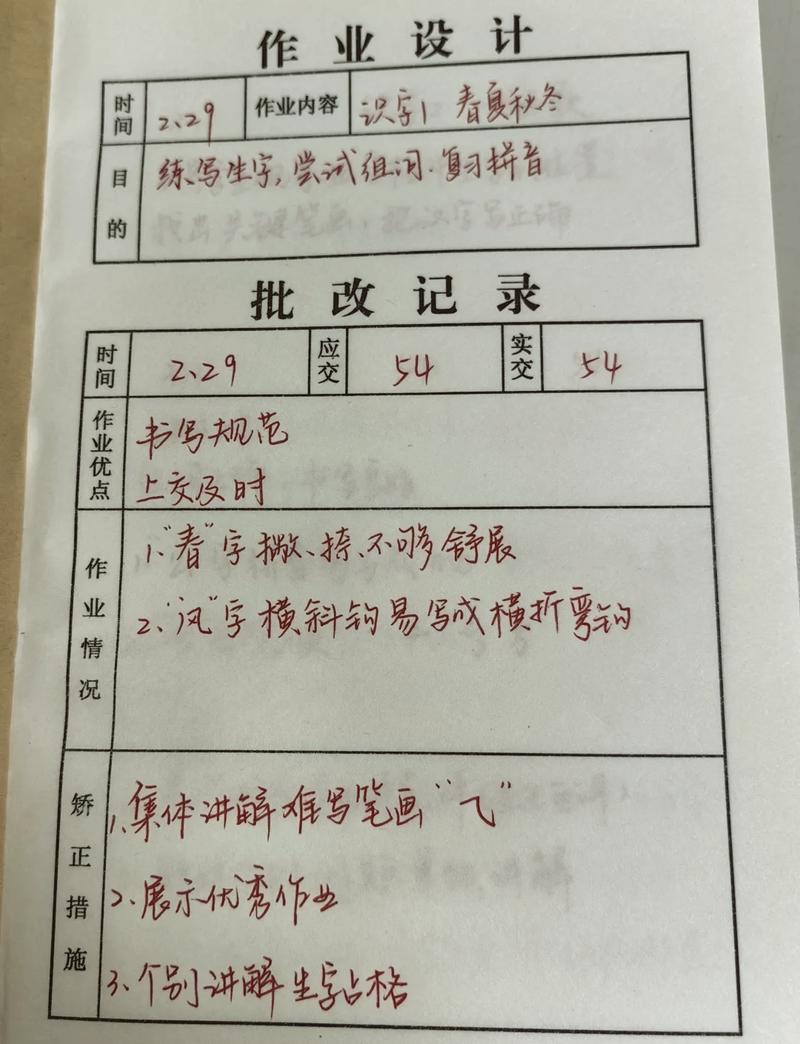 作业设计
时间 2、29 作业内容 识字1 春夏秋冬
目的 练写生字,尝试组词.复习拼音
批改记录
时间 2、29 应交 54 实交 54
作业优点 书写规范
上交及时
作业情况 1、"春"字撇、捺、不够舒展
2、"风"字横斜钩易写成横折弯钩
矫正措施 1、集体讲解难写笔画"⺄"
2、展示优秀作业
3、个别讲解生字占格